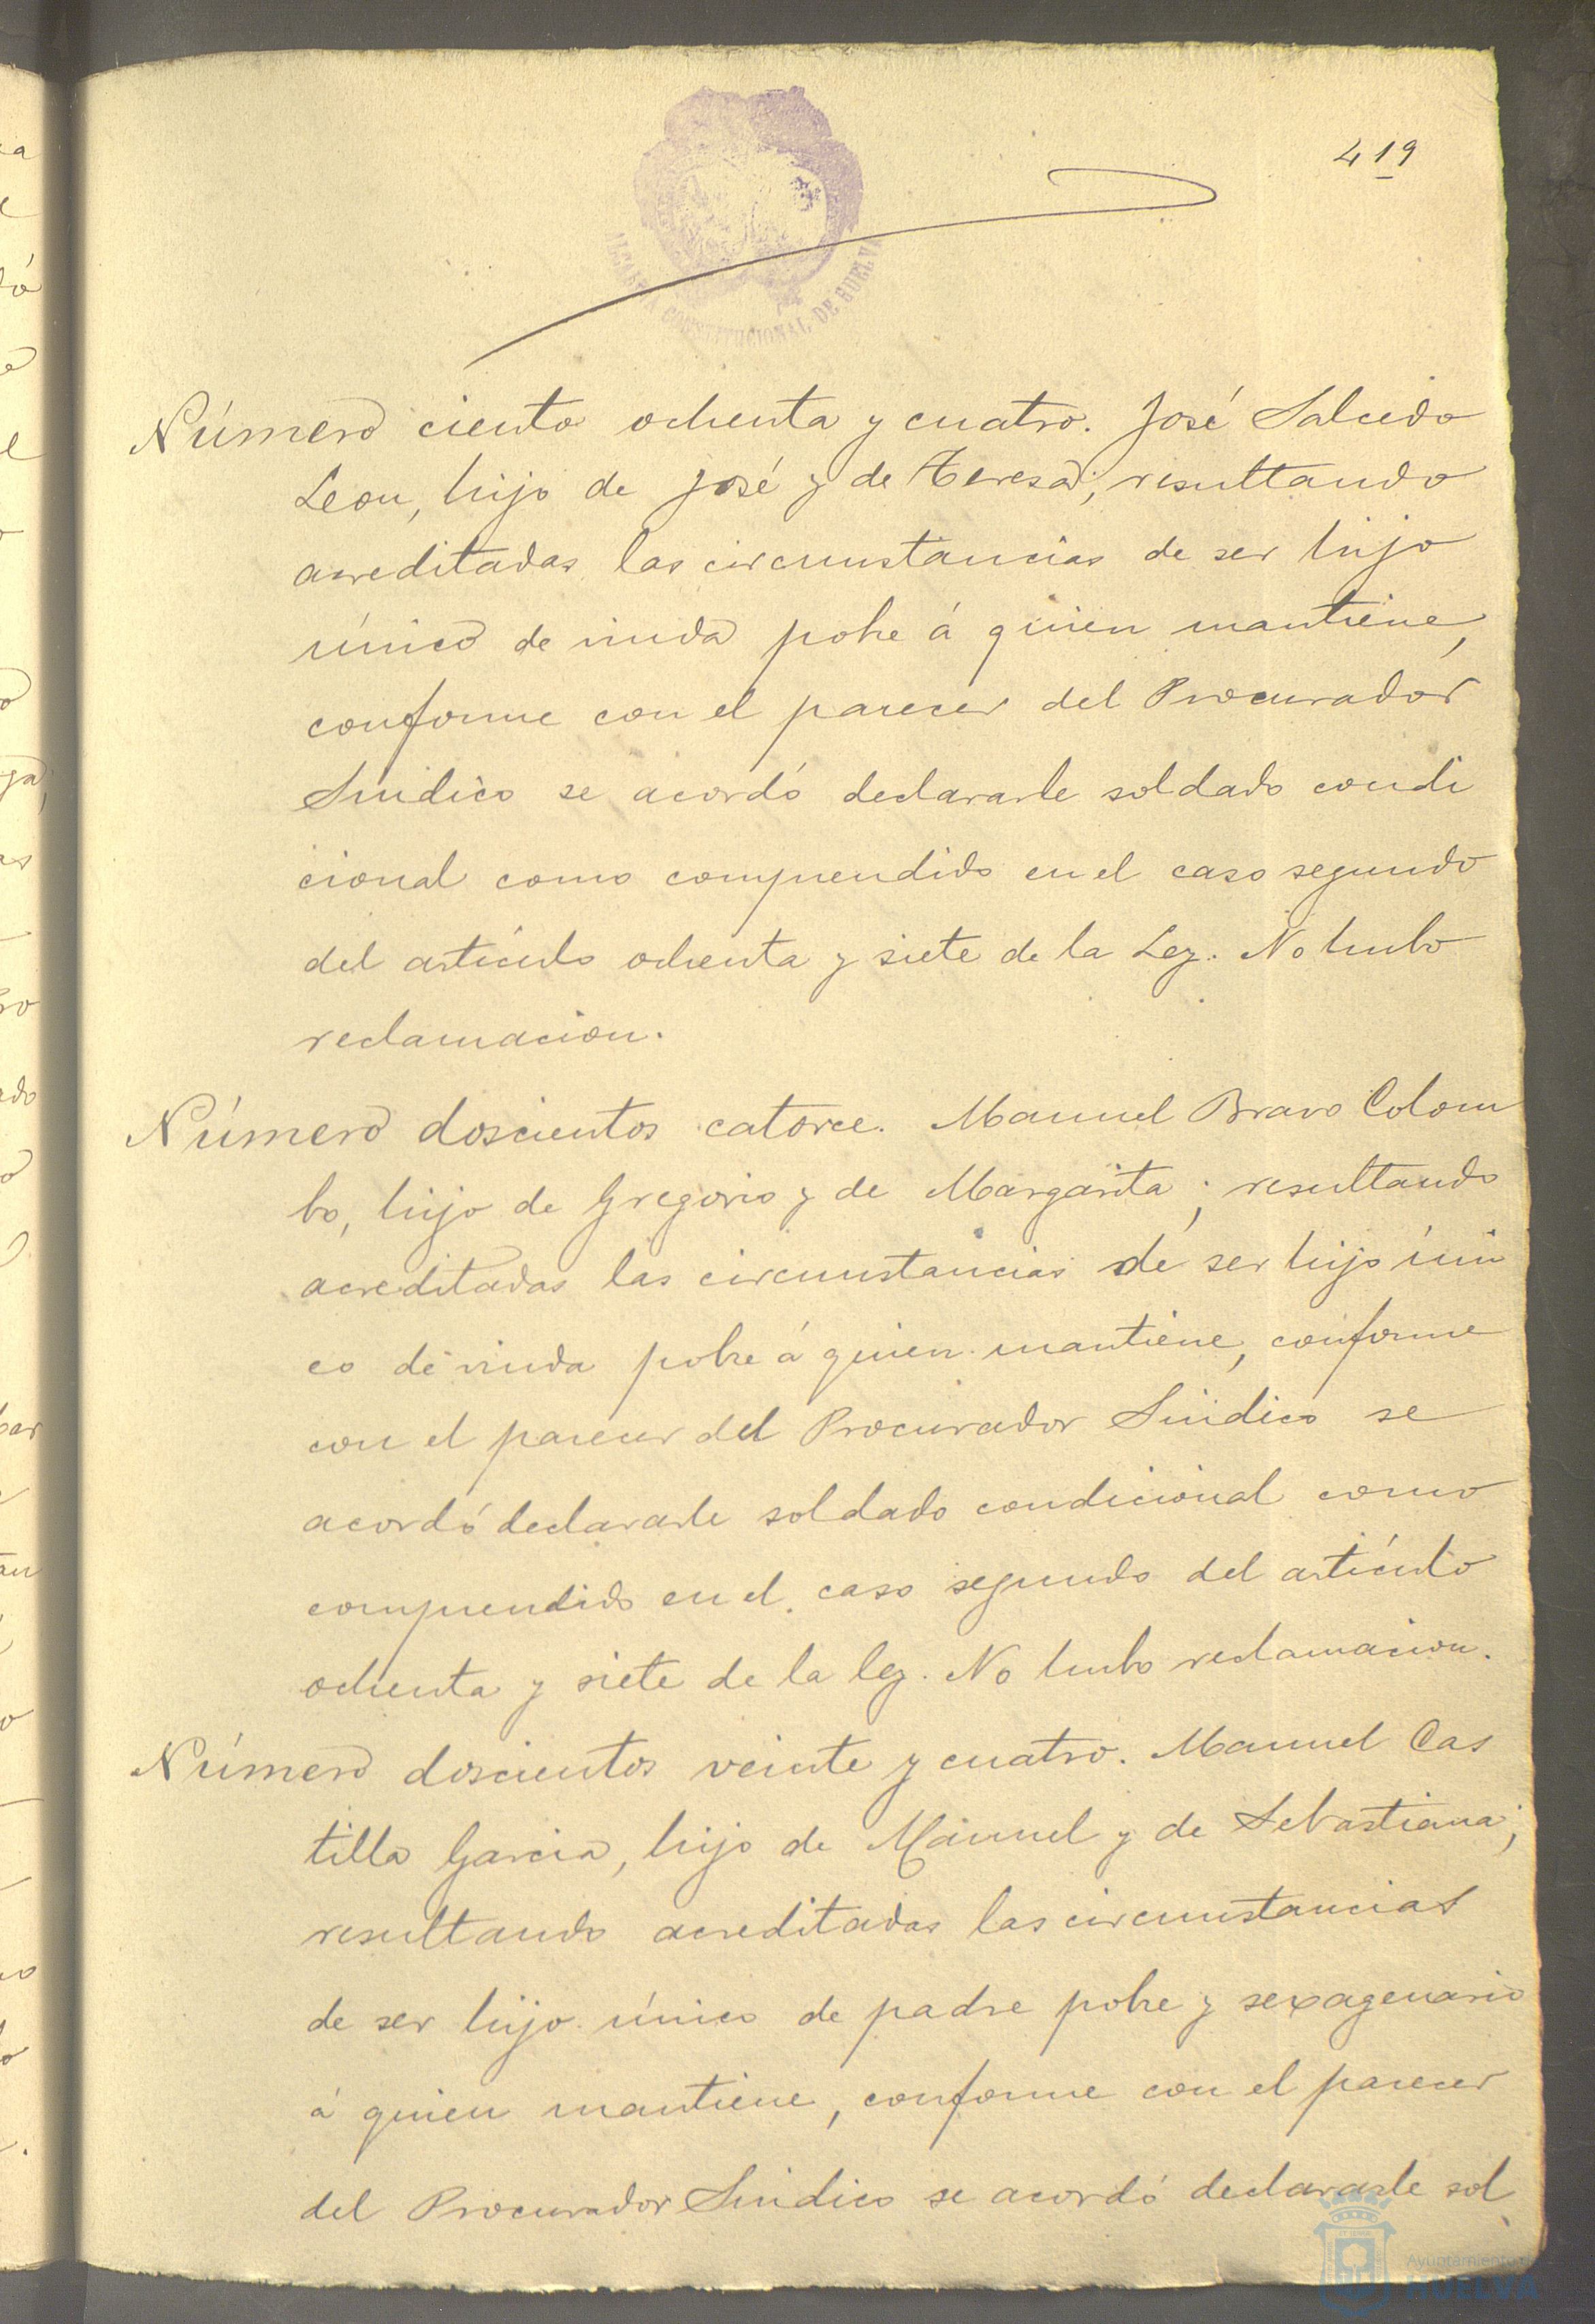 419
ALCALDIA CONSTITUCIONAL DE HUELVA
Número ciento ochenta y cuatro. José Salcedo
Leon, hijo de José y de Teresa; resultando
acreditadas las circunstancias de ser hijo
único de viuda pobre á quien mantiene,
conforme con el parecer del Procurador
Sindico se acordó declararle soldado condi
cional como comprendido en el caso segundo
del artículo ochenta y siete de la Ley. No hubo
reclamacion.
Número doscientos catorce. Manuel Bravo Colom
bo, hijo de Gregorio y de Margarita; resultando
acreditadas las circunstancias de ser hijo úni
co de viuda pobre á quien mantiene, conforme
con el parecer del Procurador Sindico se
acordó declararle soldado condicional como
comprendido en el caso segundo del artículo
ochenta y siete de la ley. No hubo reclamacion.
Número doscientos veinte y cuatro. Manuel Cas
tilla Garcia, hijo de Manuel y de Sebastiana;
resultando acreditadas las circunstancias
de ser hijo único de padre pobre y sexagenario
á quien mantiene, conforme con el parecer
del Procurador Sindico se acordó declararle sol
Ayuntamiento de
HUELVA